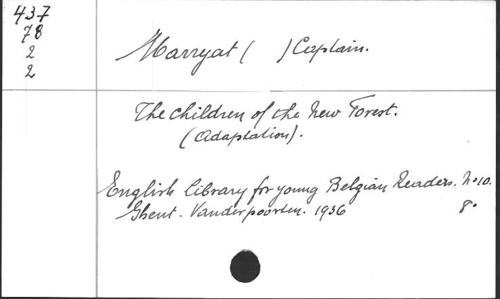 437
78
2
2
Marryat ( ) Captain.
The children of the New Forest.
(Adaptation).
English library for young Belgian Readers. No 10.
Ghent. Vanderpoorten. 1936 8°